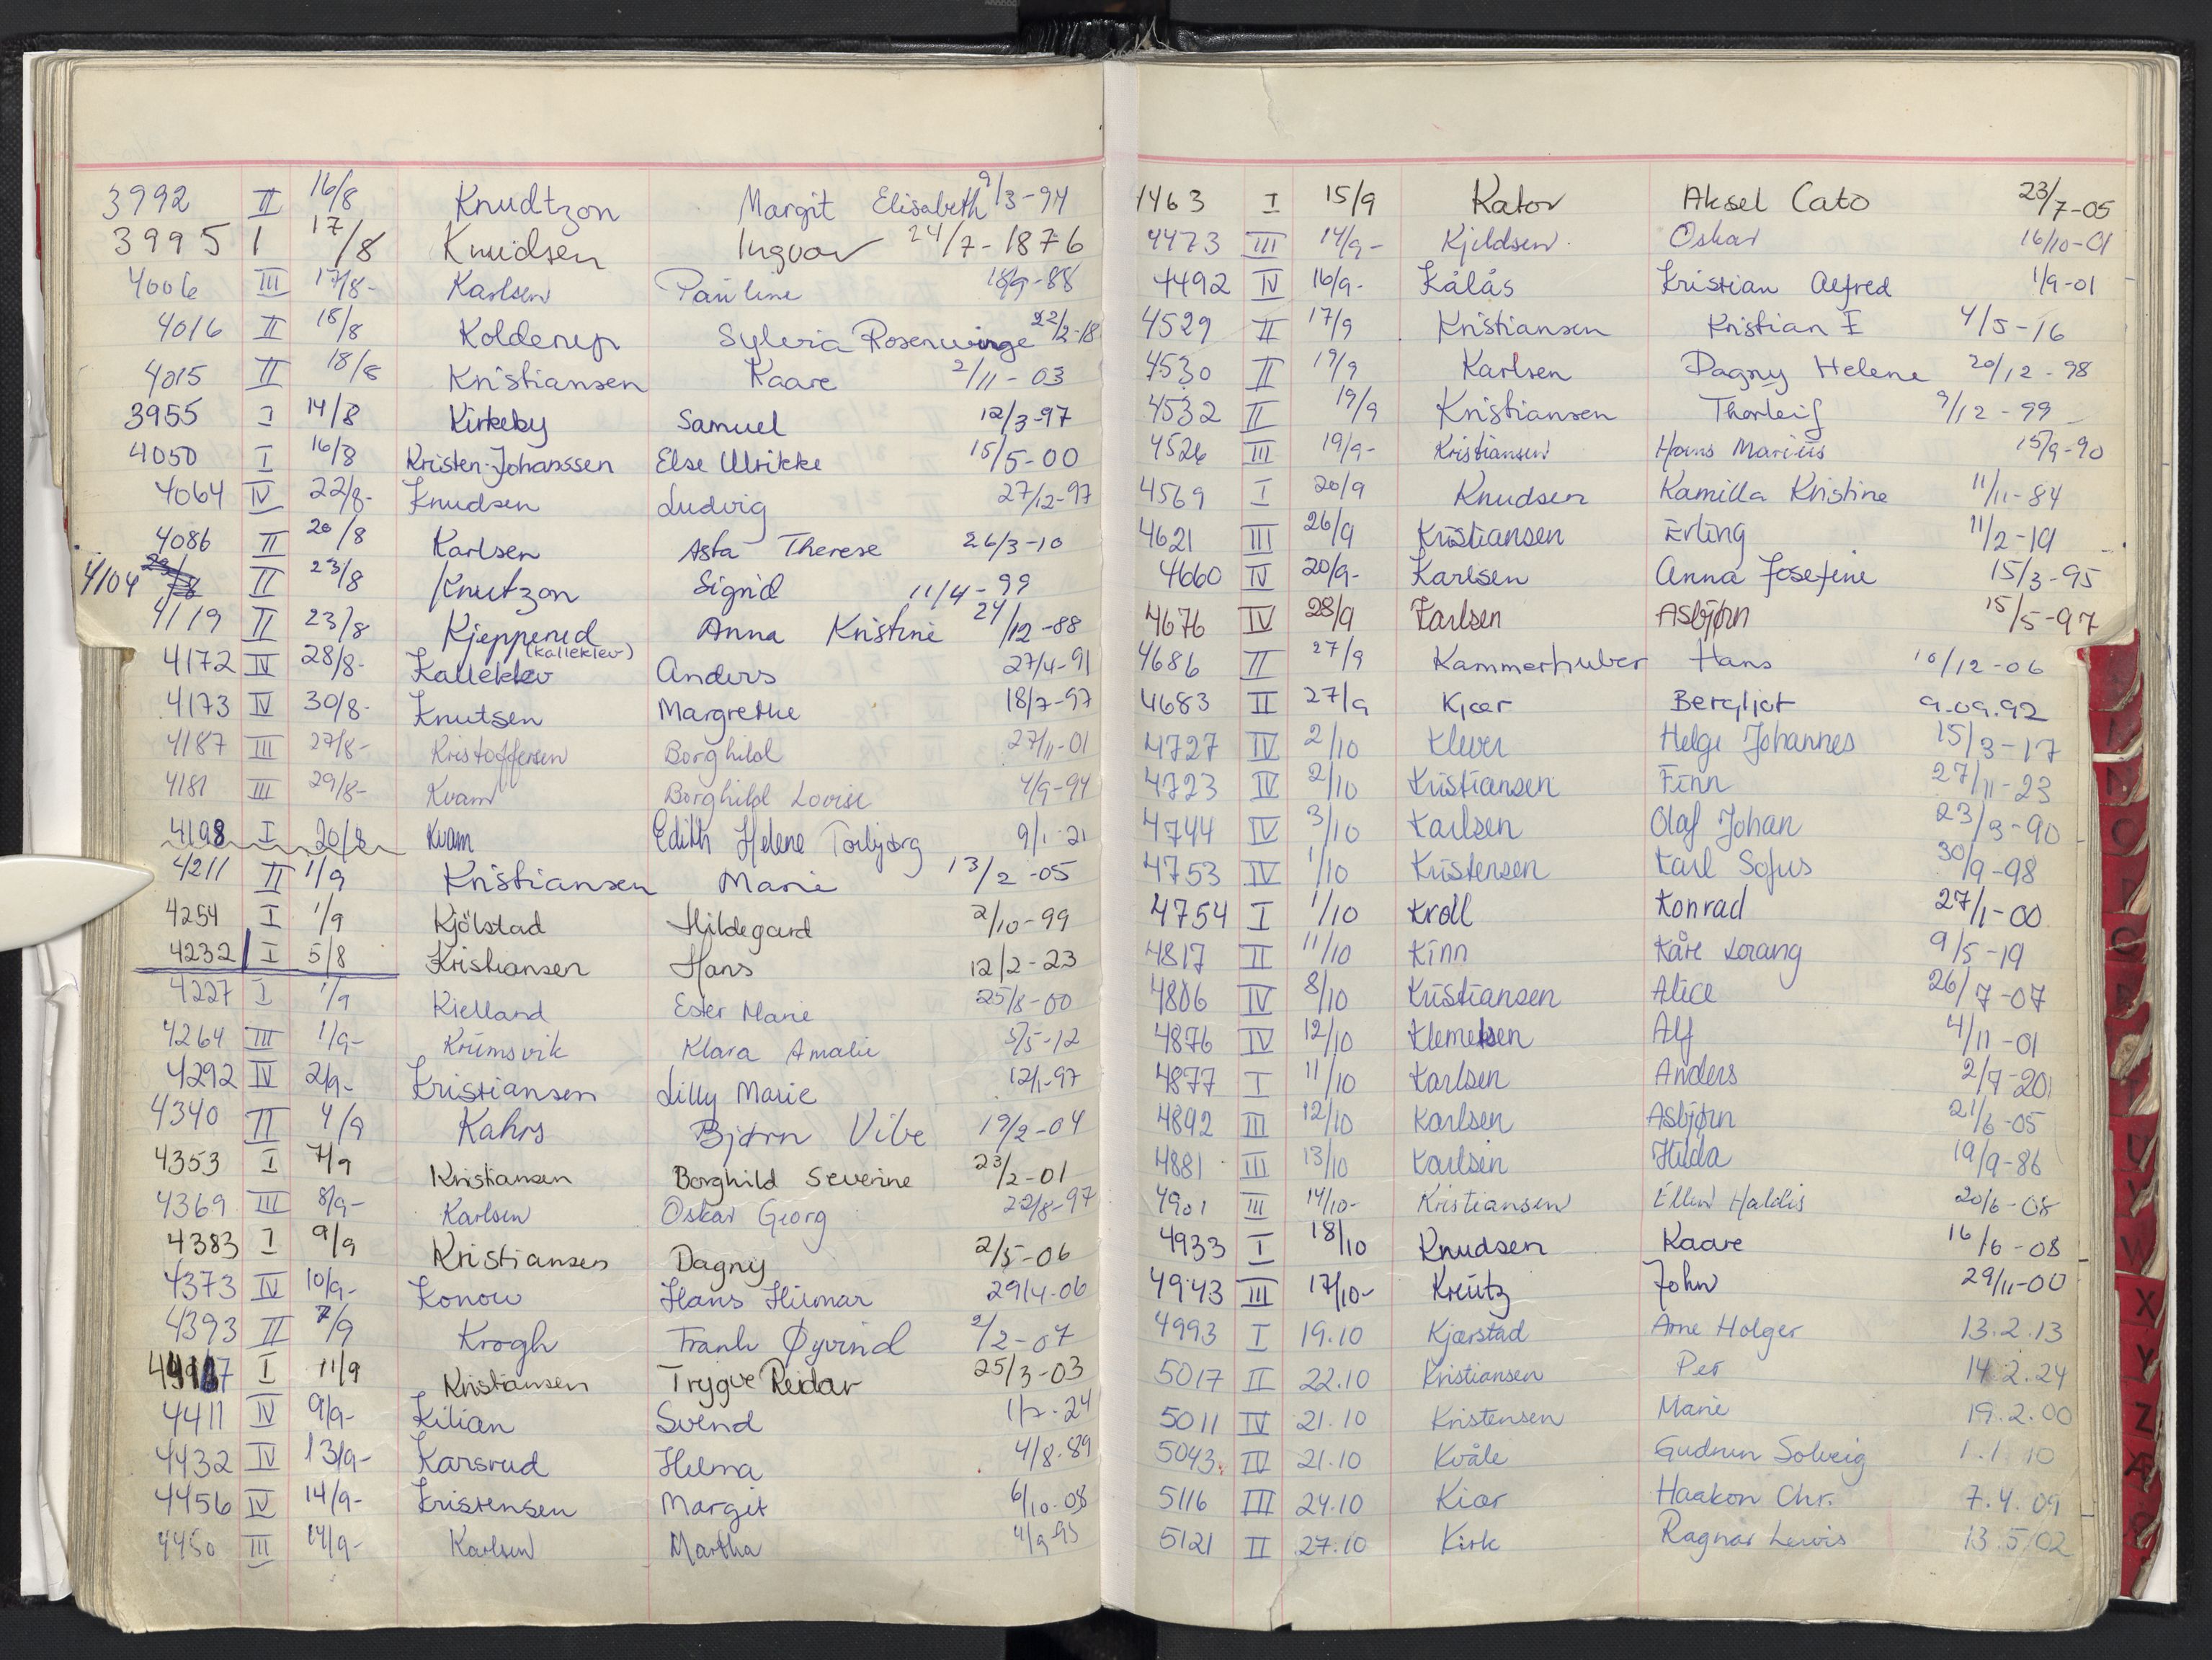 3992 II 16/8 Knudtzon Margit Elisabeth 9/3-94
3995 I 17/8 Knudsen Ingvar 24/7-1876
4006 III 17/8- Karlsen Pauline 18/9-88
4016 II 18/8 Kolderup Sylvia Rosenvinge 22/2-18
4015 II 18/8 Kristiansen Kaare 2/11-03
3955 I 14/8 Kirkeby Samuel 12/3-97
4050 I 16/8 Kristen-Johanssen Else Ulrikke 15/5-00
4064 IV 22/8- Knudsen Ludvig 27/12-97
4086 II 20/8 Karlsen Asta Therese 26/3-10
4104 II 23/8 Knutzon Sigrid 11/4-99
4119 II 23/8 Kjepperud Anna Kristine 24/12-88
4172 IV 28/8- Kallekkev (Kalleklev) Anders 27/4-91
4173 IV 30/8- Knutsen Margrethe 18/7-97
4187 III 27/8- Kristoffersen Borghild 27/11-01
4181 III 29/8- Kvam Borghild Lovise 4/9-94
4198 I 20/8 Kvam Edith Helene Torbjørg 9/1-21
4211 II 1/9 Kristiansen Marie 13/2-05
4254 I 1/9 Kjölstad Hildegard 2/10-99
4232 I 5/8 Kristiansen Hans 12/2-23
4227 I 1/9 Kielland Ester Marie 25/8-00
4264 III 1/9- Krumsvik Klara Amalie 5/5-12
4292 IV 2/9- Kristiansen Lilly Marie 12/1-97
4340 II 4/9 Kahrs Bjørn Vibe 19/2-04
4353 I 7/9 Kristiansen Borghild Severine 23/2-01
4369 III 8/9- Karlsen Oskar Georg 22/8-97
4383 I 9/9 Kristiansen Dagny 2/5-06
4373 IV 10/9- Konow Hans Hilmar 29/4-06
4393 II 7/9 Krogh Frank Øyvind 2/2-07
I 11/9 Kristiansen Trygve Reidar 25/3-03
4411 IV 9/9- Kilian Svend 1/7-24
4432 IV 13/9- Karsrud Helma 4/8-89
4456 IV 14/9- Kristensen Margit 6/10-08
4450 III 14/9- Karlsen Martha 4/9-95
1463 I 15/9 Kator Aksel Cato 23/7-05
4473 III 14/9- Kjeldsen Oskar 16/10-01
4492 IV 16/9- Kålås Kristian Alfred 1/9-01
4529 II 17/9 Kristiansen Kristian F 4/5-16
4530 II 19/9 Karlsen Dagny Helene 20/12-98
4532 II 19/9 Kristiansen Thorleif 9/12-99
4526 III 19/9- Kristiansen Hans Marius 15/9-90
4569 I 20/9 Knudsen Kamilla Kristine 11/11-84
4621 III 26/9 Kristiansen Erling 11/2-19
4660 IV 20/9- Karlsen Anna Josefine 15/3-95
4676 IV 28/9 Karlsen Asbjørn 15/5-97
4686 II 27/9 Kammerhuber Hans 10/12-06
4683 II 27/9 Kjær Bergljot 9.09.92
4727 IV 2/10 Klever Helge Johannes 15/3-17
4723 IV 2/10 Kristiansen Finn 27/11-23
4744 IV 3/10 Karlsen Olaf Johan 23/3-90
4753 IV 1/10 Kristensen Karl Sofus 30/9-98
4754 I 1/10 Kroll Konrad 27/1-00
4817 II 11/10 Kinn Kåre 9/5-19
4806 IV 8/10 Kristiansen Alice 26/7-07
4876 IV 12/10 Klemetsen Alf 4/11-01
4877 I 11/10 Karlsen Anders 2/7-20
4892 III 12/10 Karlsen Asbjørn 21/6-05
4881 III 13/10 Karlsen Hilda 19/9-86
4901 III 14/10- Kristiansen Ellen Haldis 20/6-08
4933 I 18/10 Knudsen Kaare 16/6-08
4943 III 17/10- Kreutz John 29/11-00
4993 I 19.10 Kjærstad Arne Holger 13.2.13
5017 II 22.10 Kristiansen Per 14.2.24
5011 IV 21.10 Kristensen Marie 19.2.00
5043 IV 21.10 Kvåle Gudrun Solveig 1.1 10
5116 III 24.10 Kiær Haakon Chr. 7.4.09
5121 II 27.10 Kirk Ragnar Lewis 13.5.02
U
V
W
X
Y
Z
Æ